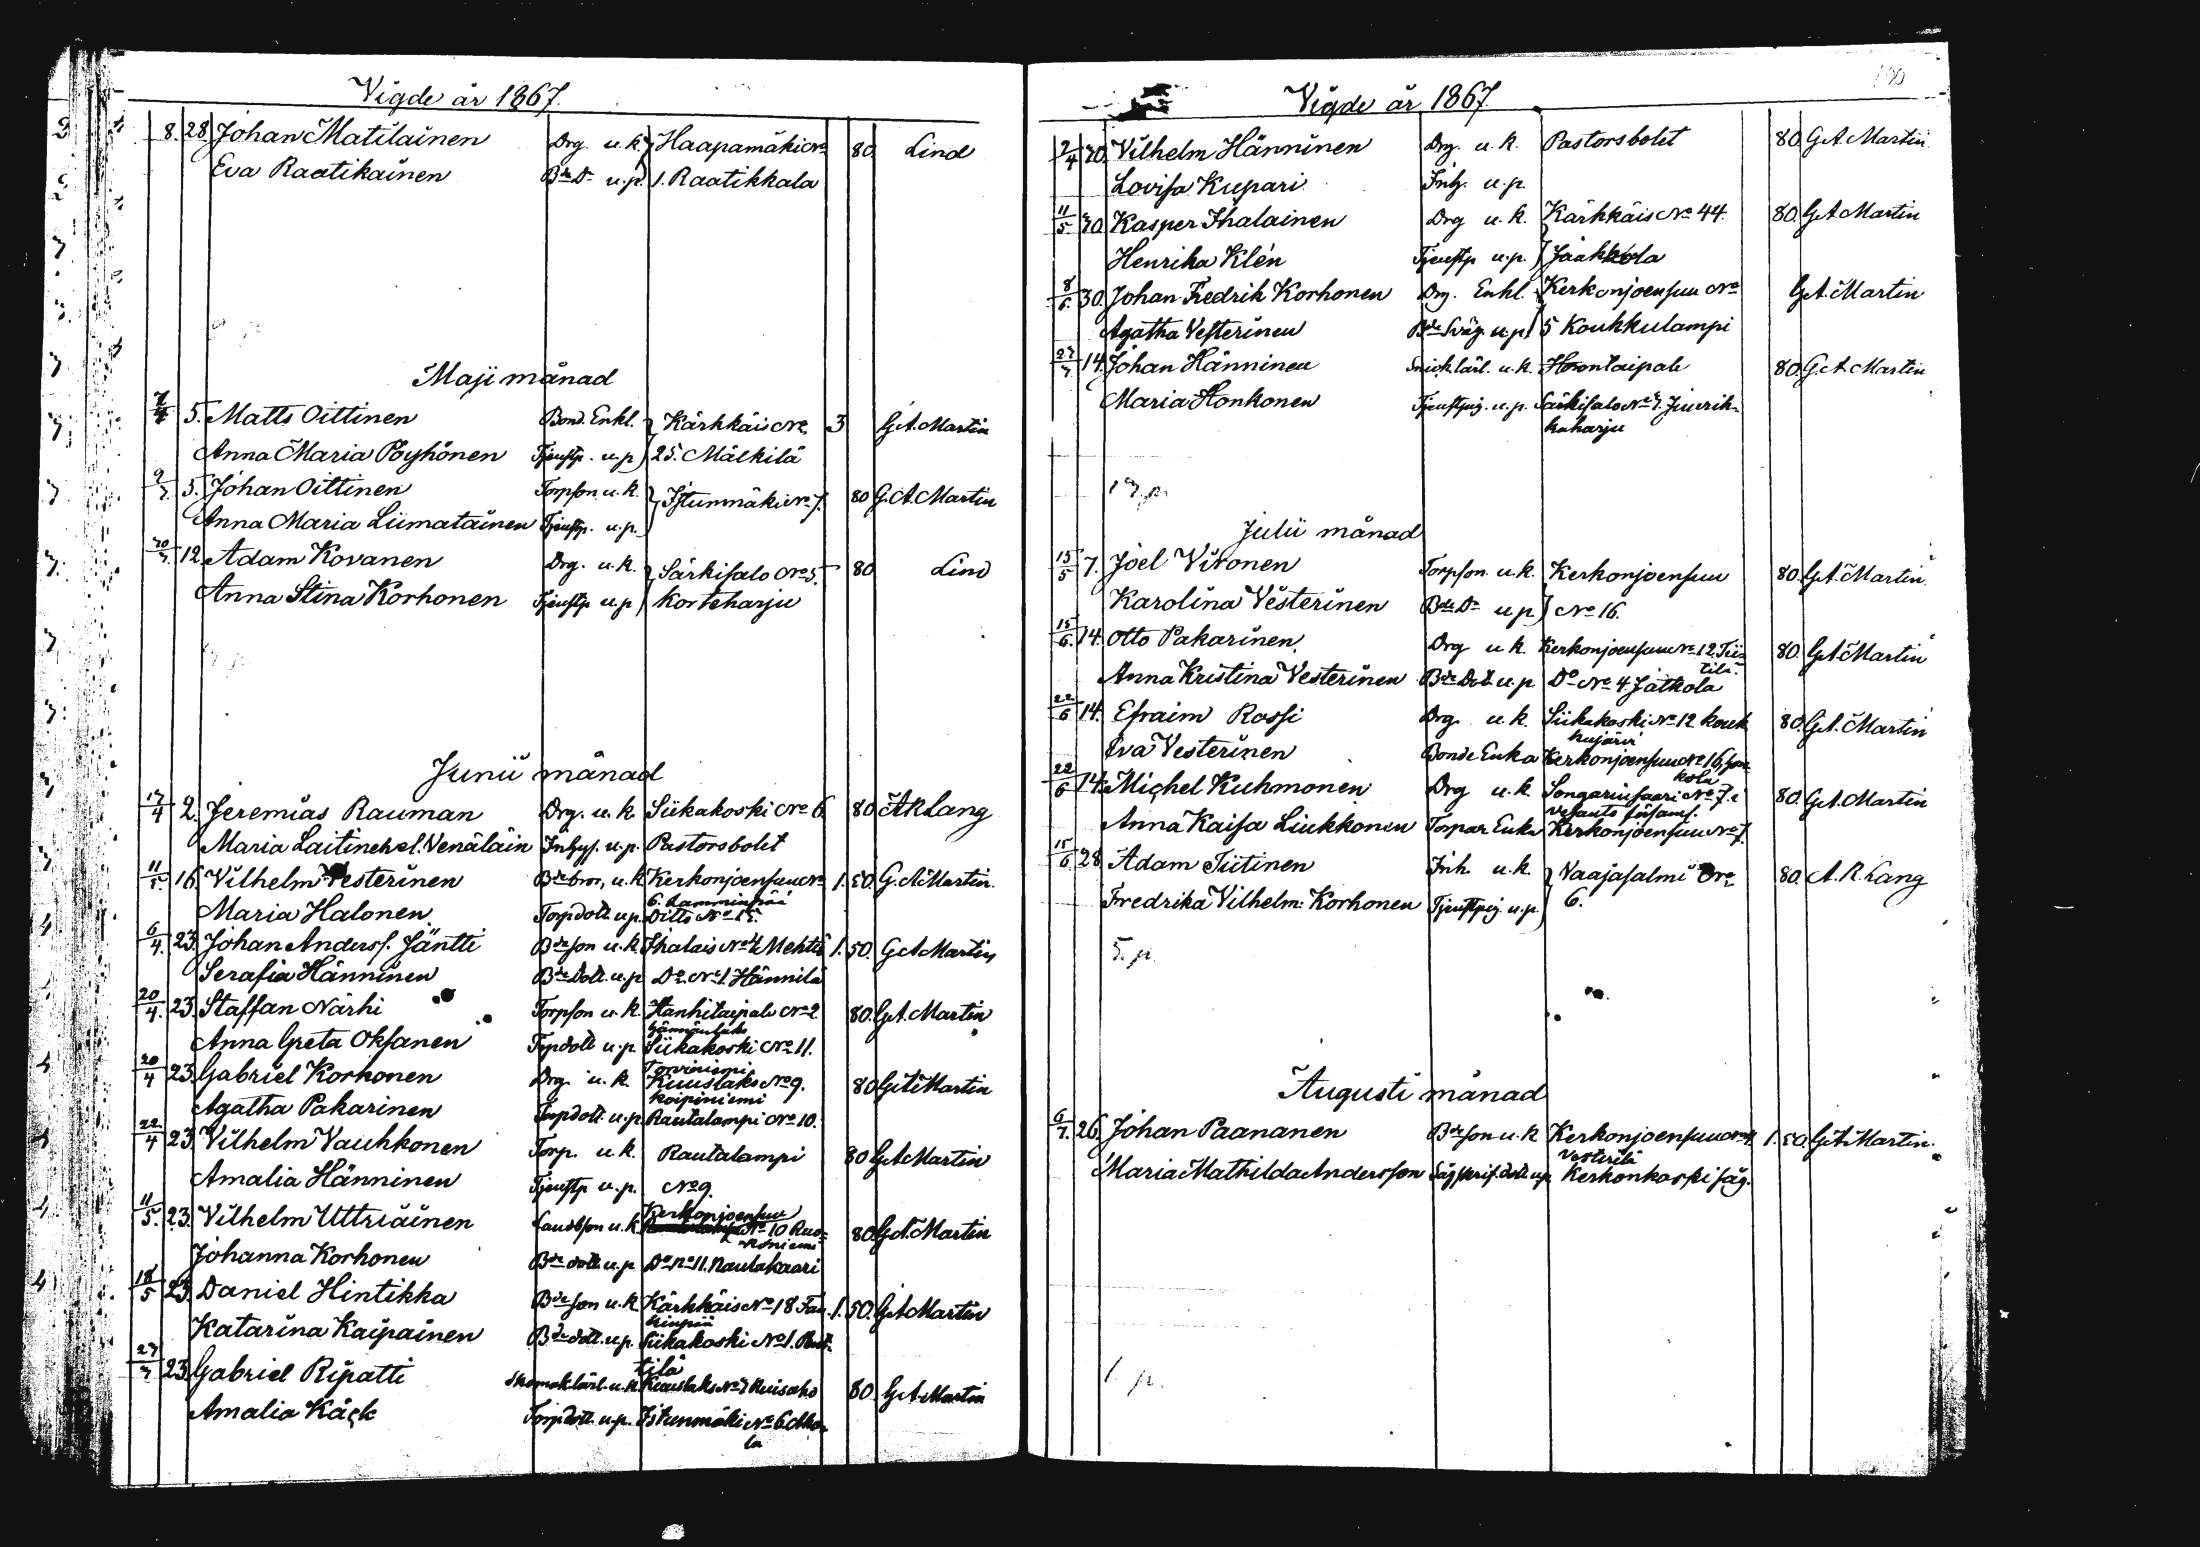 Vigde år 1867.
8. 28. Johan Matilainen Drg u.k. } Haapamäki No 80 Lind
Eva Raatikainen Bde Dr u.p. 1. Raatikkala
Maji månad
5. Matts Oittinen Bond. Enkl. } Kärkkäis No 3 G.A. Martin
Anna Maria Pöyhönen Tjenstp. u.p. 25. Mälkilä
9/7. 5. Johan Oittinen Torpson u.k. } Istunmäki No 7. 80 G.A. Martin
Anna Maria Liimatainen Tjenstp. u.p.
20/7. 12. Adam Kovanen Drg. u.k. } Särkisalo No 5. 80 Lind
Anna Stina Korhonen Tjenstp u.p Korteharju
Junii månad
17/4 2. Jeremias Rauman Drg. u.k. Siikakoski No 6 80 A R Lang
Maria Laitinen el. Venäläin Inhys. u.p. Pastorsbolet
11/5. 16. Vilhelm Vesterinen Bde bror, u.k. Kerkonjoensuu No 1. 50. G.A. Martin.
6. Lamminpää
Maria Halonen Torpdott u.p. Ditto No 15.
6/4. 23. Johan Anderss. Jäntti Bde son u.k. Ihalais No 4 Mehtiö 1. 50. G A Martin
Serafia Hänninen Bde Dott. u.p Do. No 1. Hännilä
20/4. 23. Staffan Närhi Torpson u.k. Hanhitaipale No 2 80. G.A. Martin
Anna Greta Oksanen Tpdott u.p. Siikakoski No 11.
Torviniemi
20/4 23. Gabriel Korhonen Drg. u.k. Kuuslaks No 9. 80 G A Martin
Koipiniemi
Agatha Pakarinen Torpdott. u.p. Rautalampi No 10.
22/4 23. Vilhelm Vauhkonen Torp. u.k. Rautalampi 80 G A Martin
Amalia Hänninen Tjenstp u.p. No 9.
Kerkonjoensuu
11/5. 23. Vilhelm Uttriainen Landbson u.k. No 10 Ruo- 80. G.A. Martin
koniemi
Johanna Korhonen Bde dott. u.p Do No 11. Rautakaari
18/5 23. Daniel Hintikka Bde son u.k. Kärkkäis No 18 Tan- 1. 50. G A Martin
kinpää
Katarina Kaipainen Bde dott. u.p. Siikakoski No 1.
tilä
27/7 23. Gabriel Ripatti Skomaklärl. u.k. Kuuslaks No 7 Ruisaho 80. G A Martin
Amalia Käck Torpdott. u.p. Istunmäki No 6. Aho-
la
Vigde år 1867.
2/4 30. Vilhelm Hänninen Drg. u.k. Pastorsbolet 80. G A. Martin
Lovisa Kupari Inh. u.p.
11/5 30. Kasper Ihalainen Drg u.k. Kärkkäis No 44. 80. G A Martin
Henrika Klén Tjenstp u.p. } Jääkkola
8/6. 30. Johan Fredrik Korhonen Drg. Enkl. Kerkonjoensuu No G.A. Martin
Agatha Vesterinen Bde Sväg. u.p. 5 Koukkulampi
27/7. 14. Johan Hänninen Snicklärl. u.k. Horontaipale 80. G.A Martin
Maria Honkonen Tjenstpig. u.p. Särkisalo No 7. Jinrik-
kaharju
17 p.
Julii månad
15/5 7. Joel Vironen Torpson u.k. Kerkonjoensuu 80. G.A. Martin
Karolina Vesterinen Bde Dr u.p } No 16.
15/6. 14. Otto Pakarinen Drg u.k. Kerkonjoensuu No 12. Tii- 80. G.A. Martin
tilä
Anna Kristina Vesterinen Bde Dott u.p Do No 4. Jatkola
22/6 14. Efraim Rossi Drg. u.k. Siikakoski No 12 Kouk- 80. G.A. Martin
kujärvi
Eva Vesterinen Bonde Enka Kerkonjoensuu No 16, Jon-
kola
22/6 14. Michel Kuhmonen Drg u.k Songarinsaari No 7. i 80. G.A. Martin
Vesanto församl.
Anna Kaisa Liukkonen Torpar Enka Kerkonjoensuu No 7.
15/6. 28. Adam Tiitinen Inh. u.k. } Vaajasalmi No 80. A. R. Lang
Fredrika Vilhelm: Korhonen Tjenstpig u.p 6.
5. p.
Augusti månad
6/7. 26. Johan Paananen Bde son u.k Kerkonjoensuu No 4. 1. 50. G.A. Martin.
Vesterilä
Maria Mathilda Andersson Sågskrif. dott. u.p. Kerkonkoski såg.
1. p.